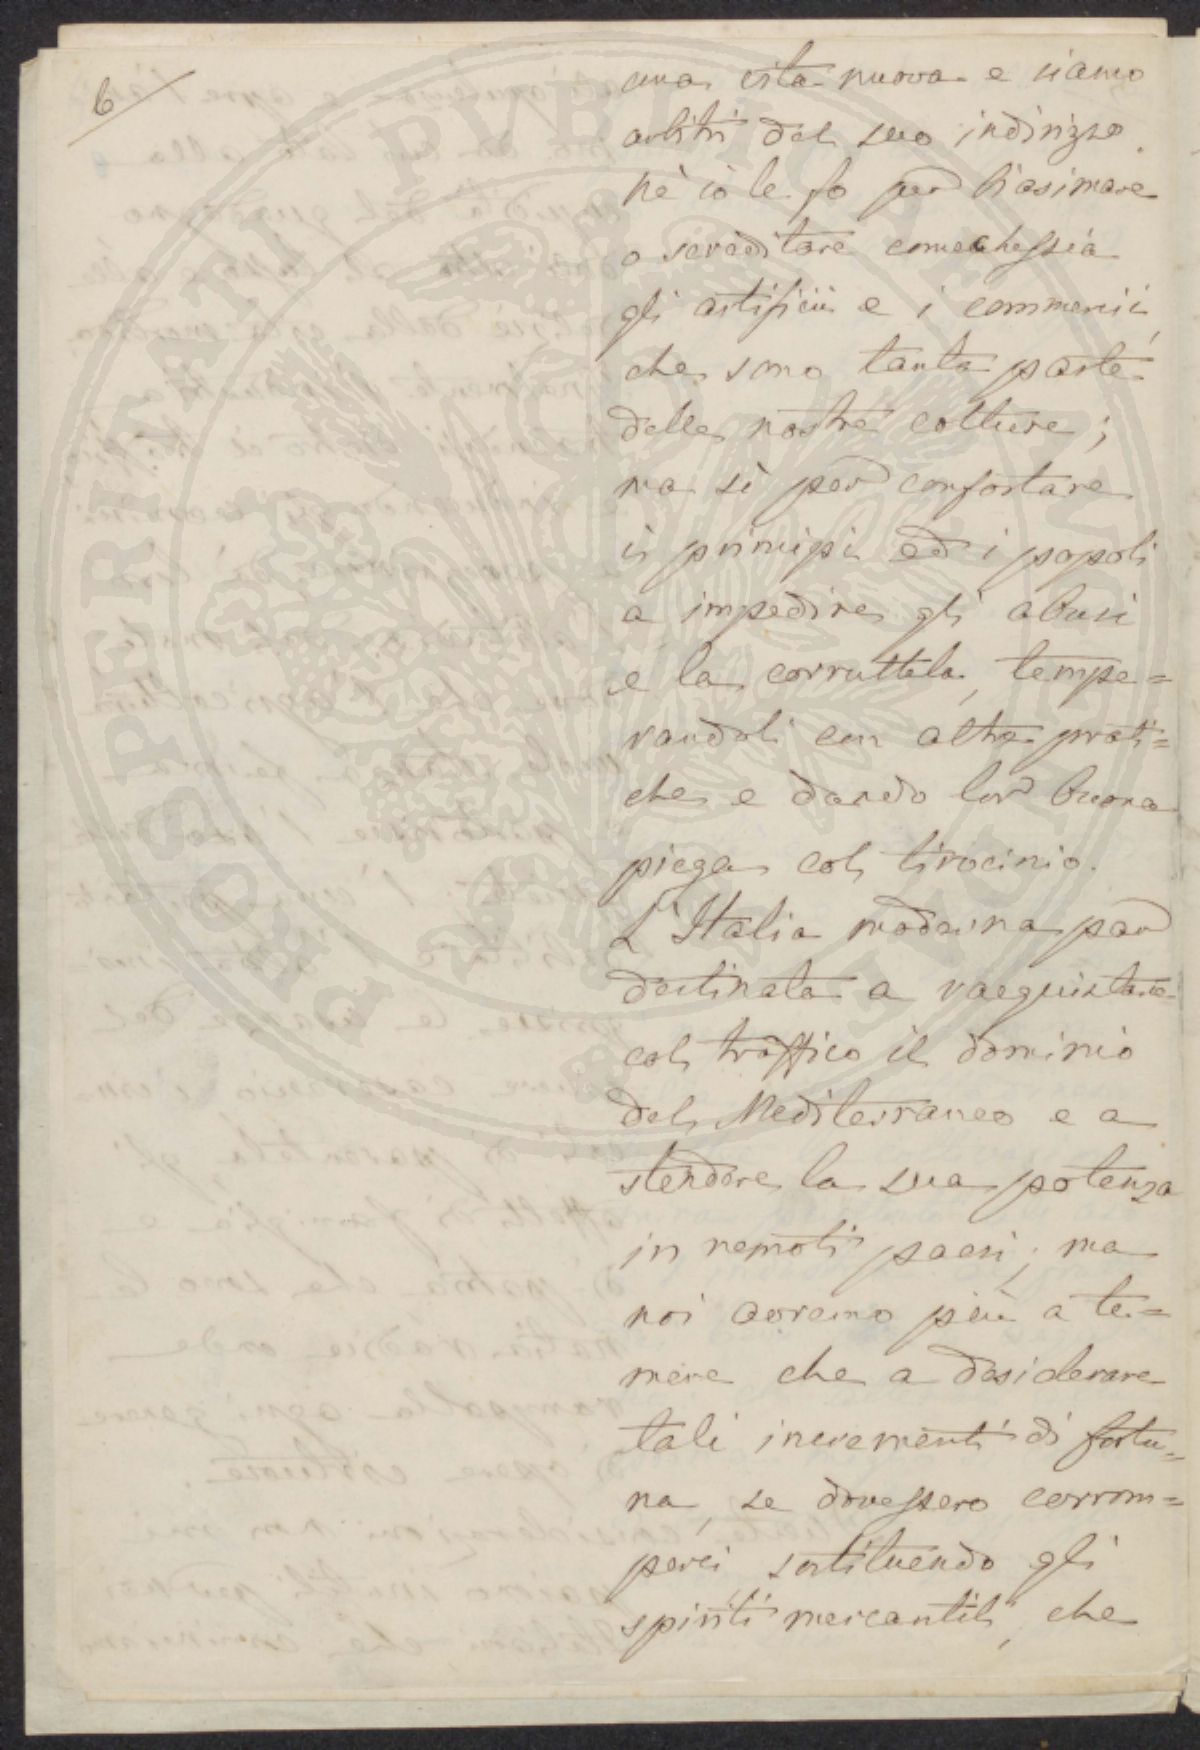 6
una vita nuova e siamo
arbitri del suo indirizzo.
nè ciò le fo per biasimare
o screditare comechessia
gli artifici e i commercii,
che sono tanta parte
delle nostre colture;
ma sì per confortare
i principi ed i popoli
a impedire gli abusi
e la corruttela, tempe=
randoli con altre prati=
che e dando lor buona
piega col tirocinio.
L'Italia moderna par
destinata a racquistare
col traffico il dominio
del Mediterraneo e a
stendere la sua potenza
in remoti paesi; ma
noi avremo più a te=
mere che a desiderare
tali incrementi di fortu=
na, se dovessero corrom=
perci sostituendo gli
spiriti mercantili, che
PROSPERITATI PVBLICAE AVGENDAE